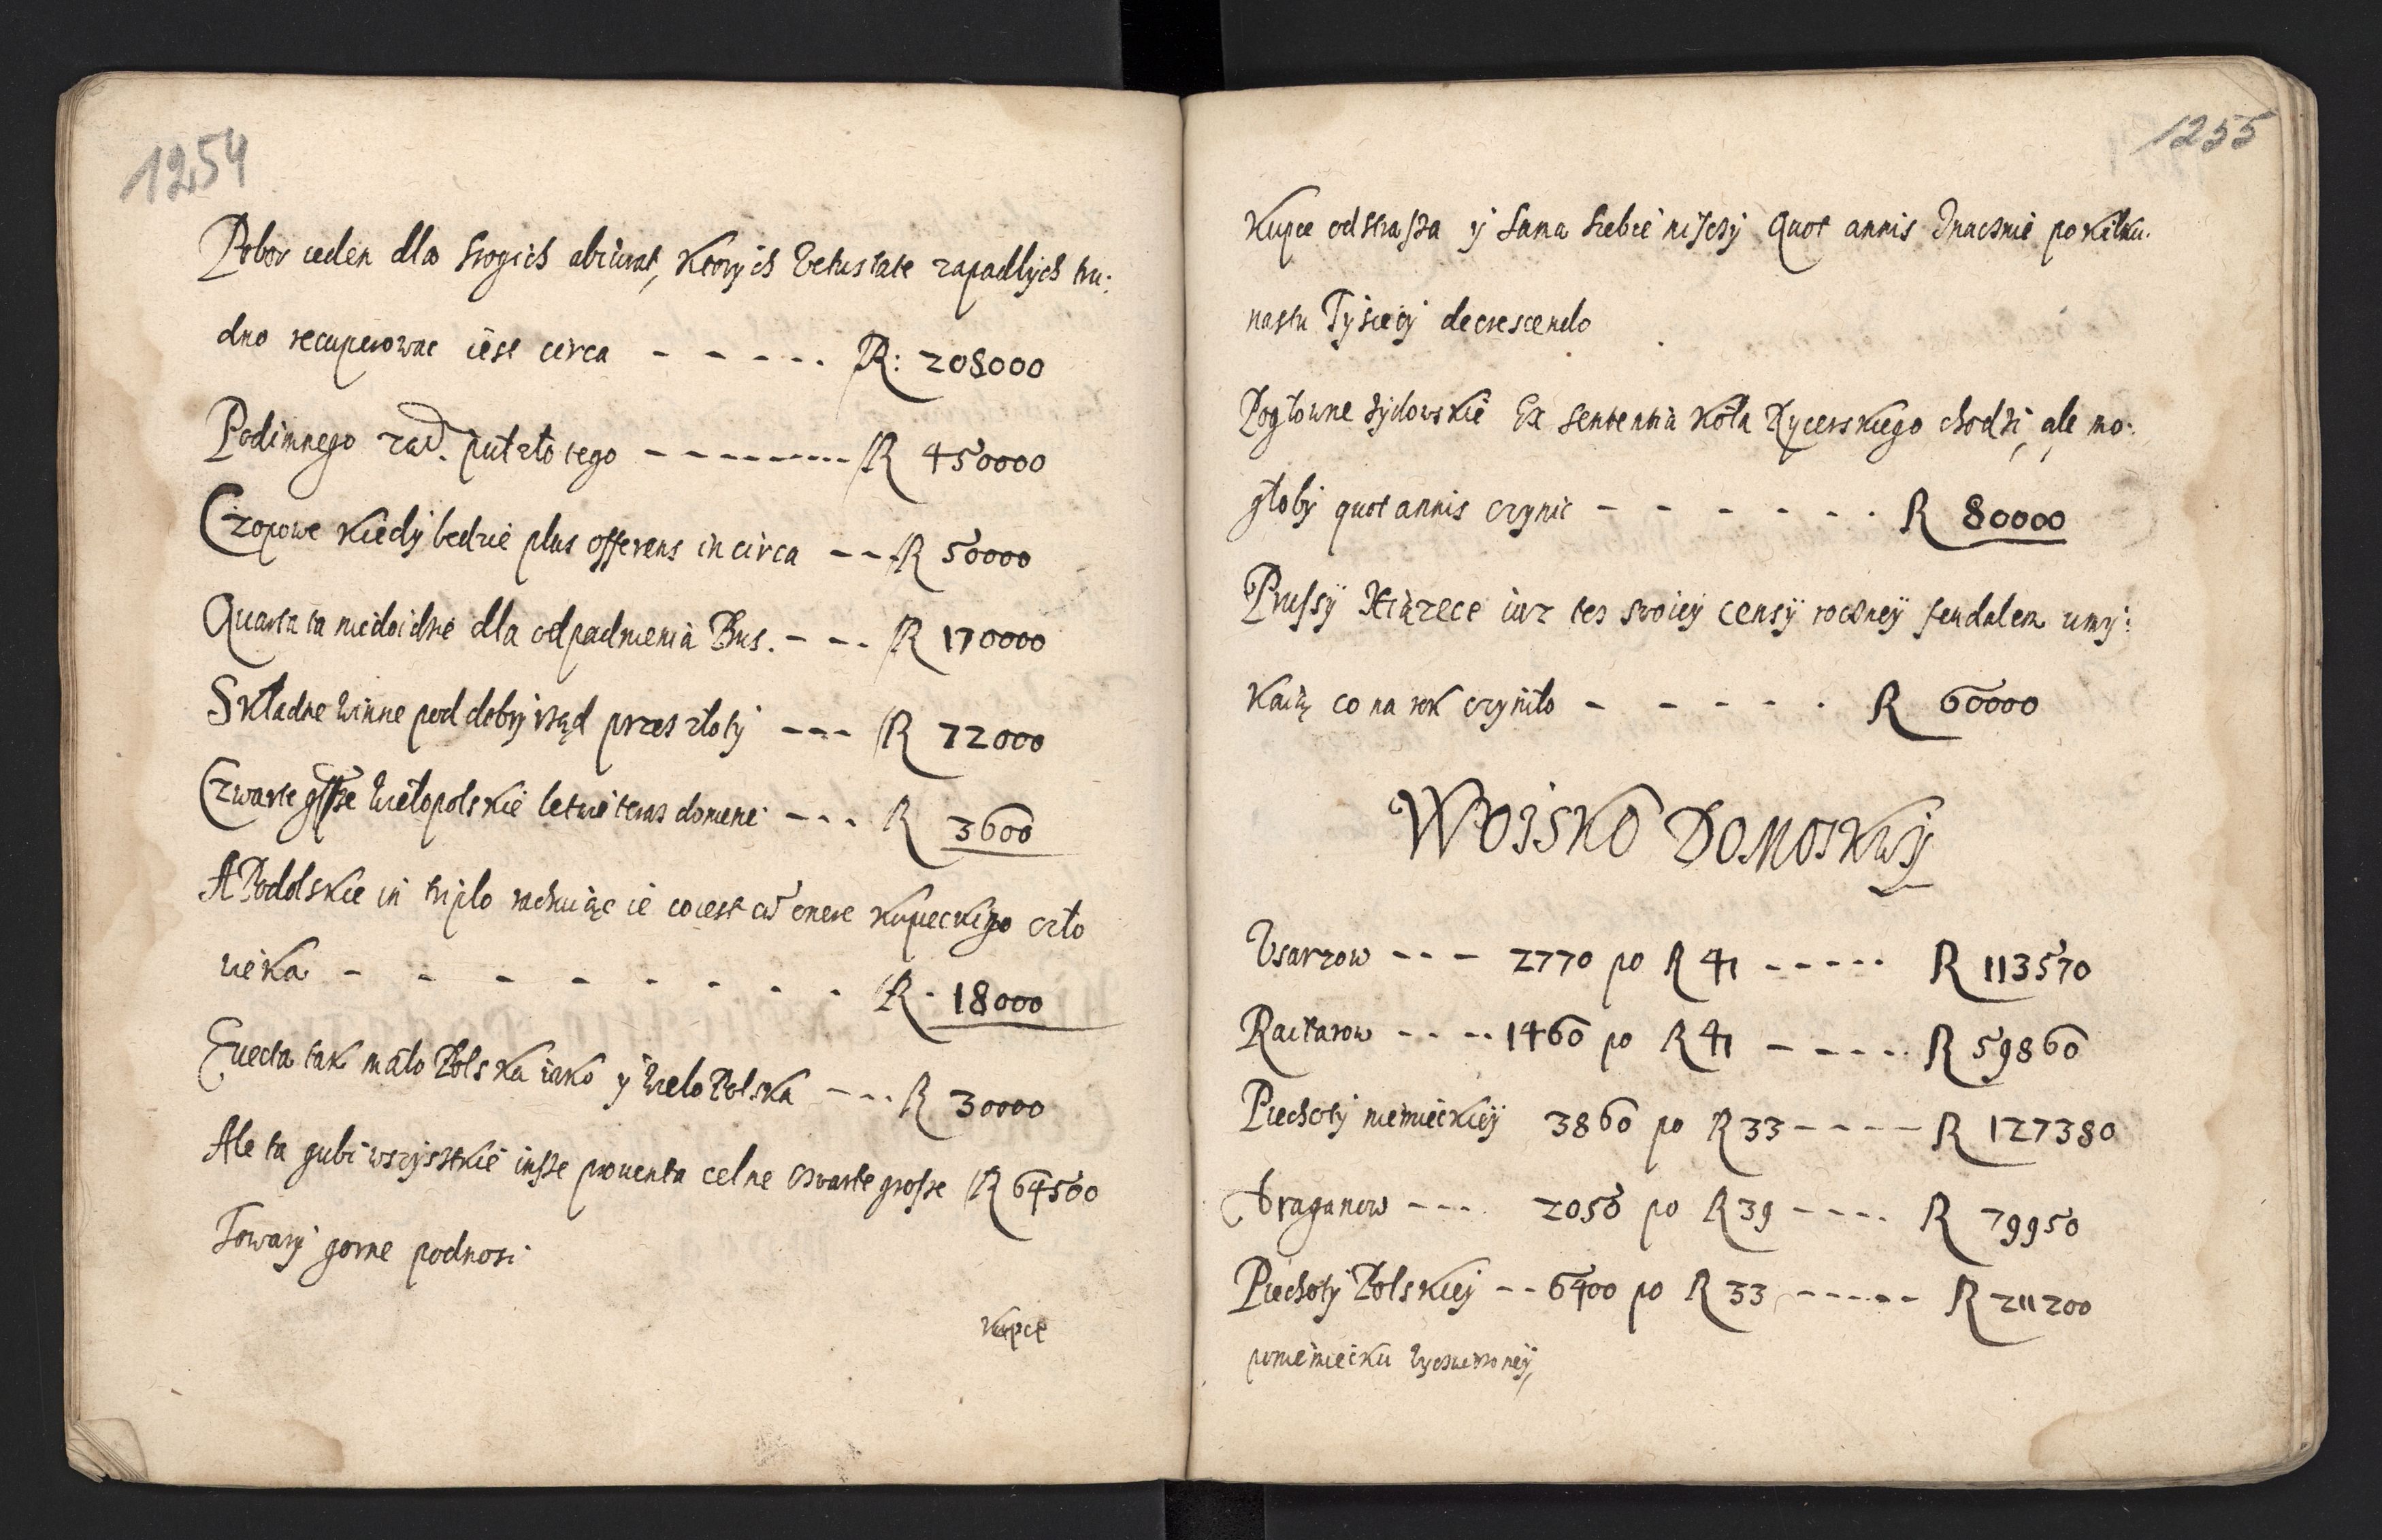 1254
Pobor ieden dla srogich abiurat, ktorych Vetustate zapadlych tru:
dno recuperowac iest circa - - - - - R: 208000
Podimnego rac. put zlotego - - - - - - - - - R 450000
Czopowe kiedy bedzie plus offerens in circa - - R 50000
Quarta ta niedoidzie dla odpadnienia Bus. - - - R 170000
Składne winne pod dobry rząd przes złoty - - - R 72000
Czwarte grosze Wielopolskie letwie teras - - - R 3600
A Podolskie in triplo rachuiąc ie co iest cum onere kupeckiego czło
wieka - - - - - - - - R. 18000
Euecta tak mało Polska iako y Wielo Polska - - - R 30000
Ale ta gubi wszystkie insze prouenta celne czwarte grosze R 64500
Towary gorne podnosi
kupce
1255
Kupce odstrasza y sama siebie niszczy quot annis znacznie po kilku:
nastu Tysięcy decrescendo
Pogłowne żydowskie Ex sententia Koła Rycerskiego chodzi, ale mo:
głoby quot annis czynic - - - - - - R 80000
Prussy Xiązece iuz tes swoiey censy roczney feudalem umy:
kaią co na rok czyniło - - - - - R 60000
WOISKO DO MOSKWY
Vsarzow - - - 2770 po R 41 - - - - - R 113570
Raitarow - - - - 1460 po R 41 - - - - - R 59860
Piechoty niemieckiey 3860 po R 33 - - - - - R 127380
Draganow - - - - 2050 po R 39 - - - - R 79950
Piechoty Polskiej - - 6400 po R 33 - - - - - R 211200
poniemiecku wycwiczoney,